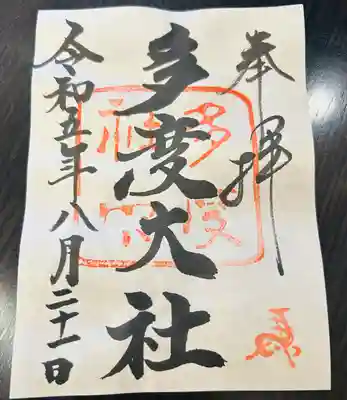 奉拝
多度大社
令和五年八月二十一日